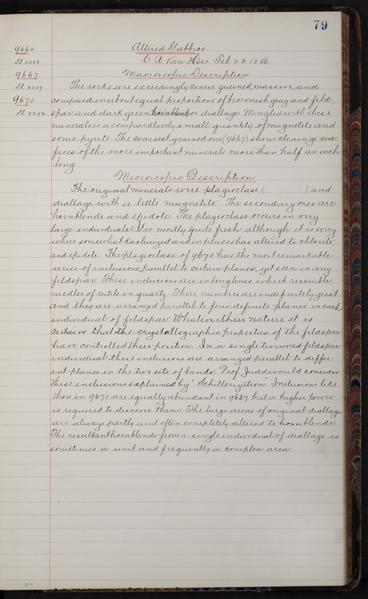 79
9660 Altered Gabbros.
C. R. Van Hise Feb 23. 1886
9667 Macroscopic Description
The rocks are exceedingly coarse grained, massive, and
9670 composed in about equal proportions of brownish gray and feld
spar and dark green hornblende or diallage. Mingled with these
minerals in comparatively small quantity is magnetite and
some pyrite. The coarsest grained one (9667) shows cleavage sur
faces of the more important minerals more than half an inch
long.
Microscopic Description
The original minerals were plagioclase ( ) and
diallage with a little magnetite. The secondary ones are
hornblende and epidote. The plagioclase occurs in very
large individuals. It is mostly quite fresh although it is every
where somewhat kaolinized and in places has altered to chlorite
and epidote. The plagioclase of 9670 has the most remarkable
series of inclusions, parallel to certain planes, yet seen in any
feldspar. These inclusions are in long lines which resemble
needles of rutile in quartz. Their numbers are indefinitely great
and they are arranged parallel to four definite planes in each
individual of feldspar. Whatever their nature it is
certain that the crystallographic properties of the feldspar
have controlled their position. In a single twinned feldspar
individual these inclusions are arranged parallel to differ
ent planes in the two sets of bands. Prof. Judd would consider
these inclusions explained by "Schillerization. Inclusions like
those in 9670 are equally abundant in 9667 but a higher power
is required to discover them. The large areas of original diallage
are always partly and often completely altered to hornblende.
The resultant hornblende from a single individual of diallage is
sometimes a unit and frequently a complex area